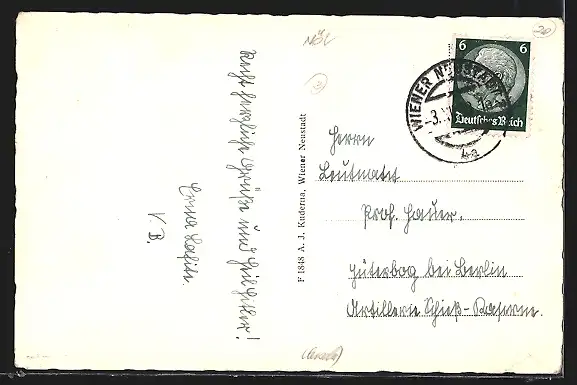 Recht herzliche Grüße und Heil Hitler!
Erna
V B.
F 1848 A. J. Kuderna, Wiener Neustadt
NÖ
20
6 6
Deutsches Reich
WIENER NEUSTADT
-3.
4a
Herrn
Leutnant
Prof. Hauer,
Jüterbog bei Berlin
Artillerie Schieß-Kaserne.